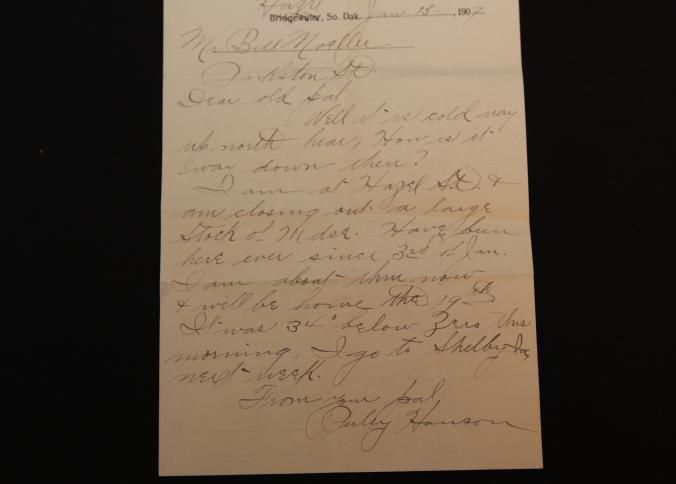 Hazel
Bridgewater, So. Dak. Jan 15, 1907
Mr Bill Moeller
Parkston S.D.
Dear old pal
Well it is cold way
up north hear, How is it
way down their?
I am at Hazel S.D. &
am closing out a large
Stock of Mdse. Have been
here ever since 3rd of Jan.
I am about thru now
& will be home the 19th
It was 34° below Zero this
morning, I go to Shelby Ia
next week.
From your pal.
Hanson